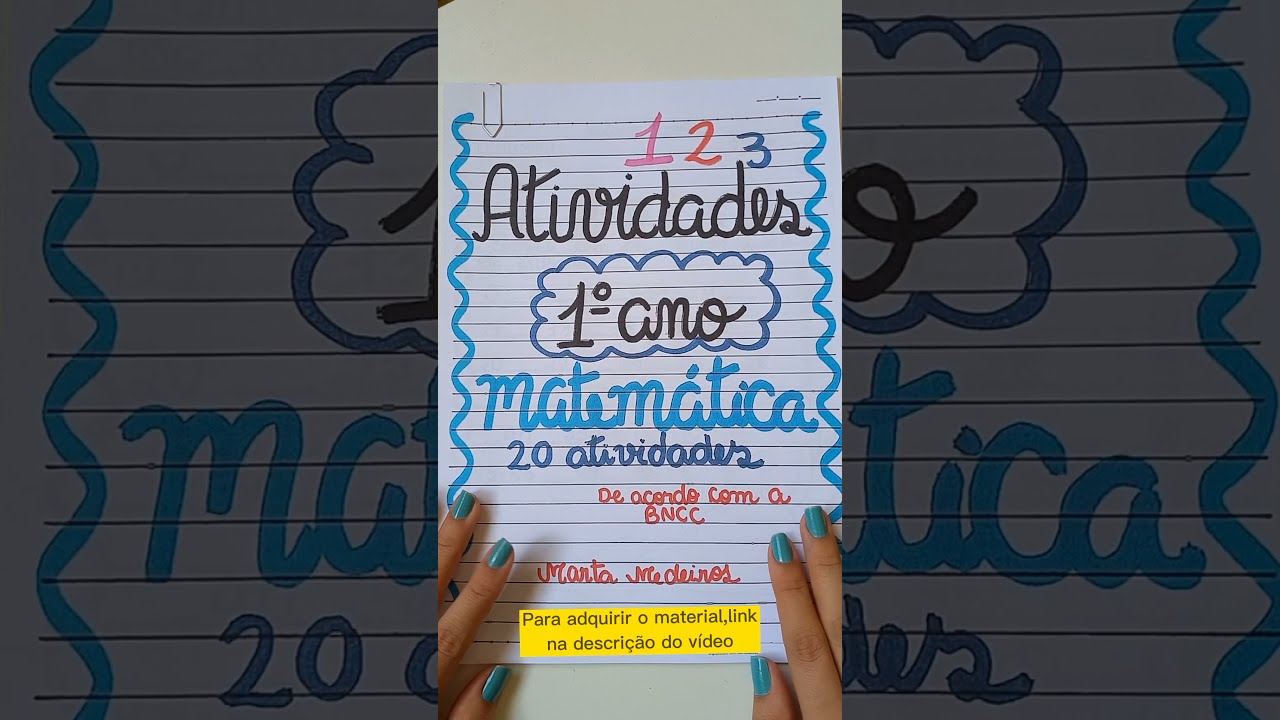 1 2 3
Atividades
1º ano
matemática
20 atividades
De acordo com a
BNCC
Marta Medeiros
Para adquirir o material,link
na descrição do vídeo